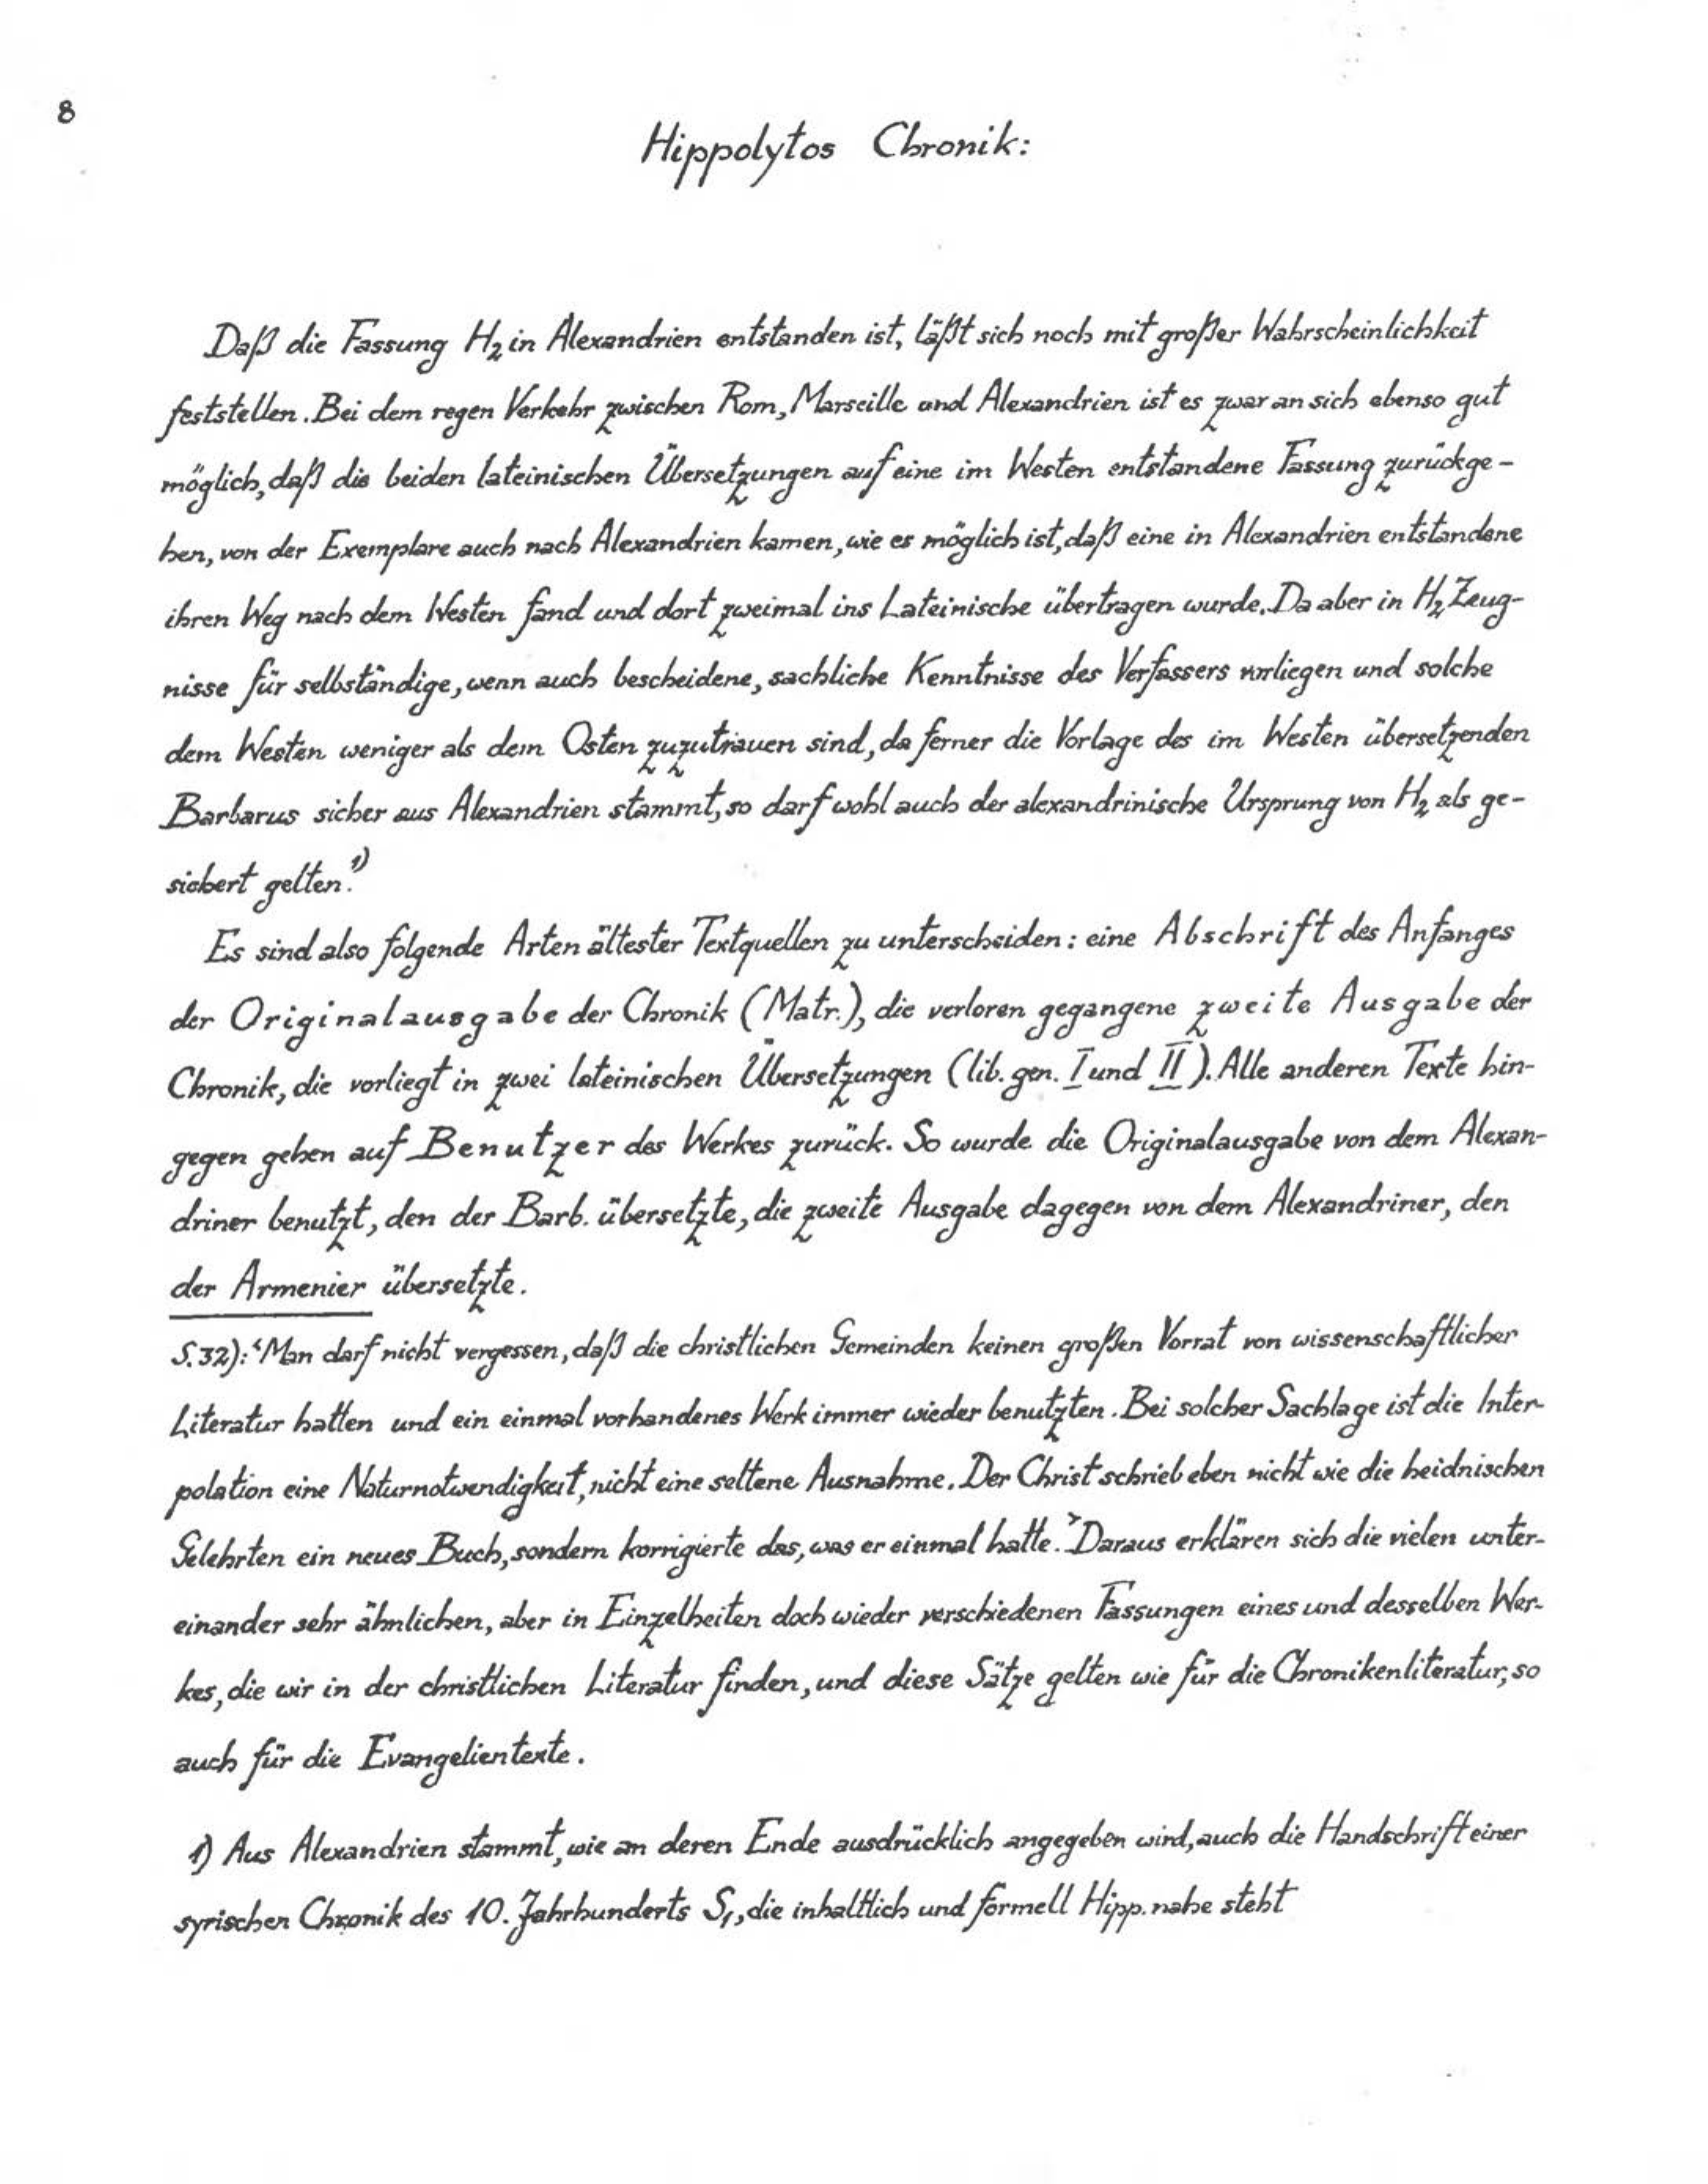 8
Hippolytos Chronik:
Daß die Fassung H₂ in Alexandrien entstanden ist, läßt sich noch mit großer Wahrscheinlichkeit
feststellen. Bei dem regen Verkehr zwischen Rom, Marseille und Alexandrien ist es zwar an sich ebenso gut
möglich, daß die beiden lateinischen Übersetzungen auf eine im Westen entstandene Fassung zurückge-
hen, von der Exemplare auch nach Alexandrien kamen, wie es möglich ist, daß eine in Alexandrien entstandene
ihren Weg nach dem Westen fand und dort zweimal ins Lateinische übertragen wurde. Da aber in H₂ Zeug-
nisse für selbständige, wenn auch bescheidene, sachliche Kenntnisse des Verfassers vorliegen und solche
dem Westen weniger als dem Osten zuzutrauen sind, da ferner die Vorlage des im Westen übersetzenden
Barbarus sicher aus Alexandrien stammt, so darf wohl auch der alexandrinische Ursprung von H₂ als ge-
sichert gelten.¹⁾
Es sind also folgende Arten ältester Textquellen zu unterscheiden: eine Abschrift des Anfanges
der Originalausgabe der Chronik (Matr.), die verloren gegangene zweite Ausgabe der
Chronik, die vorliegt in zwei lateinischen Übersetzungen (lib. gen. I und II). Alle anderen Texte hin-
gegen gehen auf Benutzer des Werkes zurück. So wurde die Originalausgabe von dem Alexan-
driner benutzt, den der Barb. übersetzte, die zweite Ausgabe dagegen von dem Alexandriner, den
der Armenier übersetzte.
S.32): ‘Man darf nicht vergessen, daß die christlichen Gemeinden keinen großen Vorrat von wissenschaftlicher
Literatur hatten und ein einmal vorhandenes Werk immer wieder benutzten. Bei solcher Sachlage ist die Inter-
polation eine Naturnotwendigkeit, nicht eine seltene Ausnahme. Der Christ schrieb eben nicht wie die heidnischen
Gelehrten ein neues Buch, sondern korrigierte das, was er einmal hatte.’ Daraus erklären sich die vielen unter-
einander sehr ähnlichen, aber in Einzelheiten doch wieder verschiedenen Fassungen eines und desselben Wer-
kes, die wir in der christlichen Literatur finden, und diese Sätze gelten wie für die Chronikenliteratur, so
auch für die Evangelientexte.
1) Aus Alexandrien stammt, wie an deren Ende ausdrücklich angegeben wird, auch die Handschrift einer
syrischen Chronik des 10. Jahrhunderts S₁, die inhaltlich und formell Hipp. nahe steht